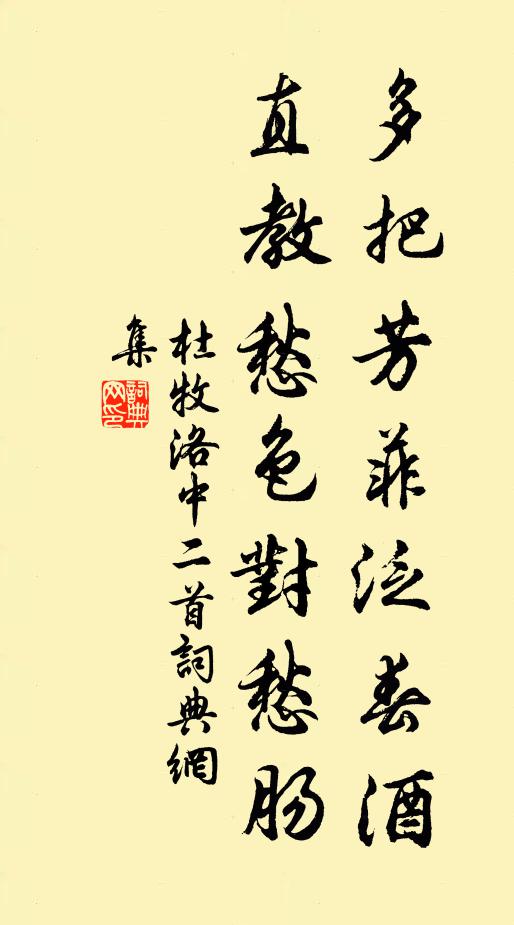 多把芳菲泛春酒
直教愁色對愁肠
杜牧洛中二首詞典網
集
詞典
网印